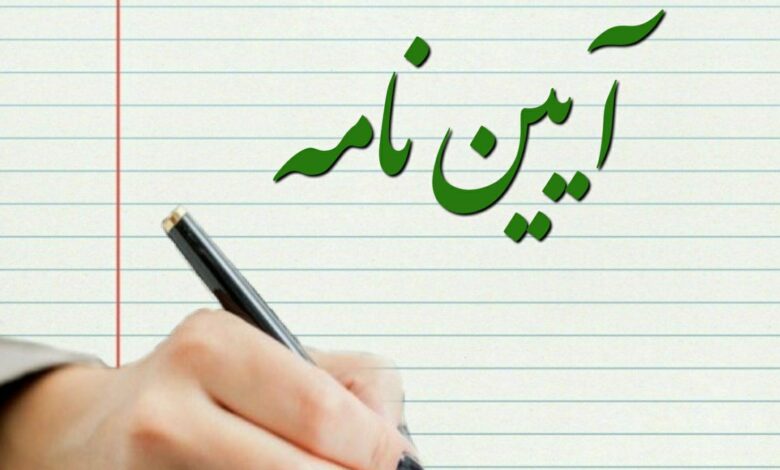 آیین نامه